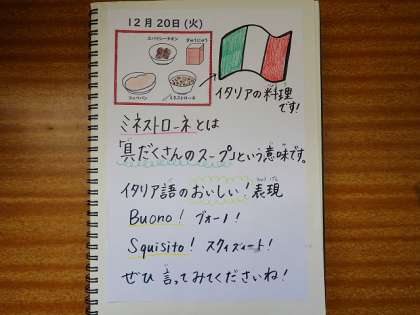 12月20日(火)
スパイシーチキン
ぎゅうにゅう
コッペパン
ミネストローネ
イタリアの料理
です!
ミネストローネとは
「具だくさんのスープ」という意味です。
イタリア語のおいしい!表現
Buono! ブオーノ!
Squisito! スクイズィート!
ぜひ言ってみてくださいね!